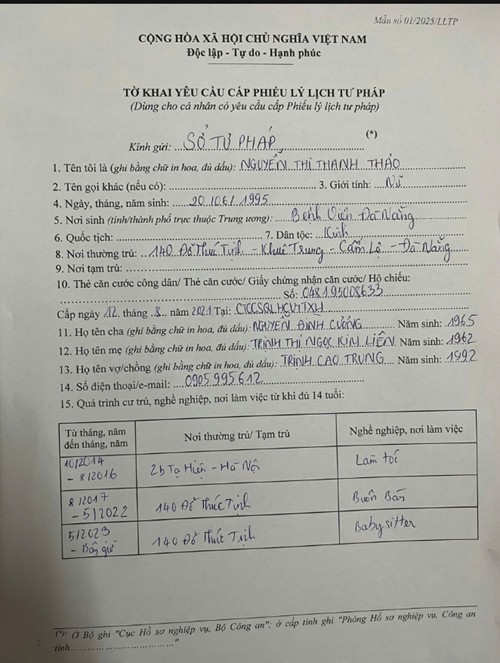 Mẫu số 01/2025/LLTP
CỘNG HÒA XÃ HỘI CHỦ NGHĨA VIỆT NAM
Độc lập - Tự do - Hạnh phúc
TỜ KHAI YÊU CẦU CẤP PHIẾU LÝ LỊCH TƯ PHÁP
(Dùng cho cá nhân có yêu cầu cấp Phiếu lý lịch tư pháp)
Kính gửi: SỞ TƯ PHÁP (*)
1. Tên tôi là (ghi bằng chữ in hoa, đủ dấu): NGUYỄN THỊ THANH THẢO
2. Tên gọi khác (nếu có): 3. Giới tính: Nữ
4. Ngày, tháng, năm sinh: 20/06/1995
5. Nơi sinh (tỉnh/thành phố trực thuộc Trung ương): Bệnh Viện Đà Nẵng
6. Quốc tịch: 7. Dân tộc: Kinh
8. Nơi thường trú: 140 Đỗ Thúc Tịnh - Khuê Trung - Cẩm Lệ - Đà Nẵng
9. Nơi tạm trú:
10. Thẻ căn cước công dân/ Thẻ căn cước/ Giấy chứng nhận căn cước/ Hộ chiếu:
Số: 048195008633
Cấp ngày 12 tháng 8 năm 2021 Tại: CTCCSQLHCVTTXH
11. Họ tên cha (ghi bằng chữ in hoa, đủ dấu): NGUYỄN ĐÌNH CƯỜNG Năm sinh: 1965
12. Họ tên mẹ (ghi bằng chữ in hoa, đủ dấu): TRỊNH THỊ NGỌC KIM LIÊN Năm sinh: 1962
13. Họ tên vợ/chồng (ghi bằng chữ in hoa, đủ dấu): TRỊNH CAO TRUNG Năm sinh: 1992
14. Số điện thoại/e-mail: 0905995612
15. Quá trình cư trú, nghề nghiệp, nơi làm việc từ khi đủ 14 tuổi:
Từ tháng, năm đến tháng, năm Nơi thường trú/ Tạm trú Nghề nghiệp, nơi làm việc
10/2014 - 8/2016 2b Tạ Hiện - Hà Nội Làm tóc
8/2017 - 5/2022 140 Đỗ Thúc Tịnh Buôn Bán
5/2023 - Bây giờ 140 Đỗ Thúc Tịnh Babysitter
(*): Ở Bộ ghi "Cục Hồ sơ nghiệp vụ, Bộ Công an"; ở cấp tỉnh ghi "Phòng Hồ sơ nghiệp vụ, Công an
tỉnh